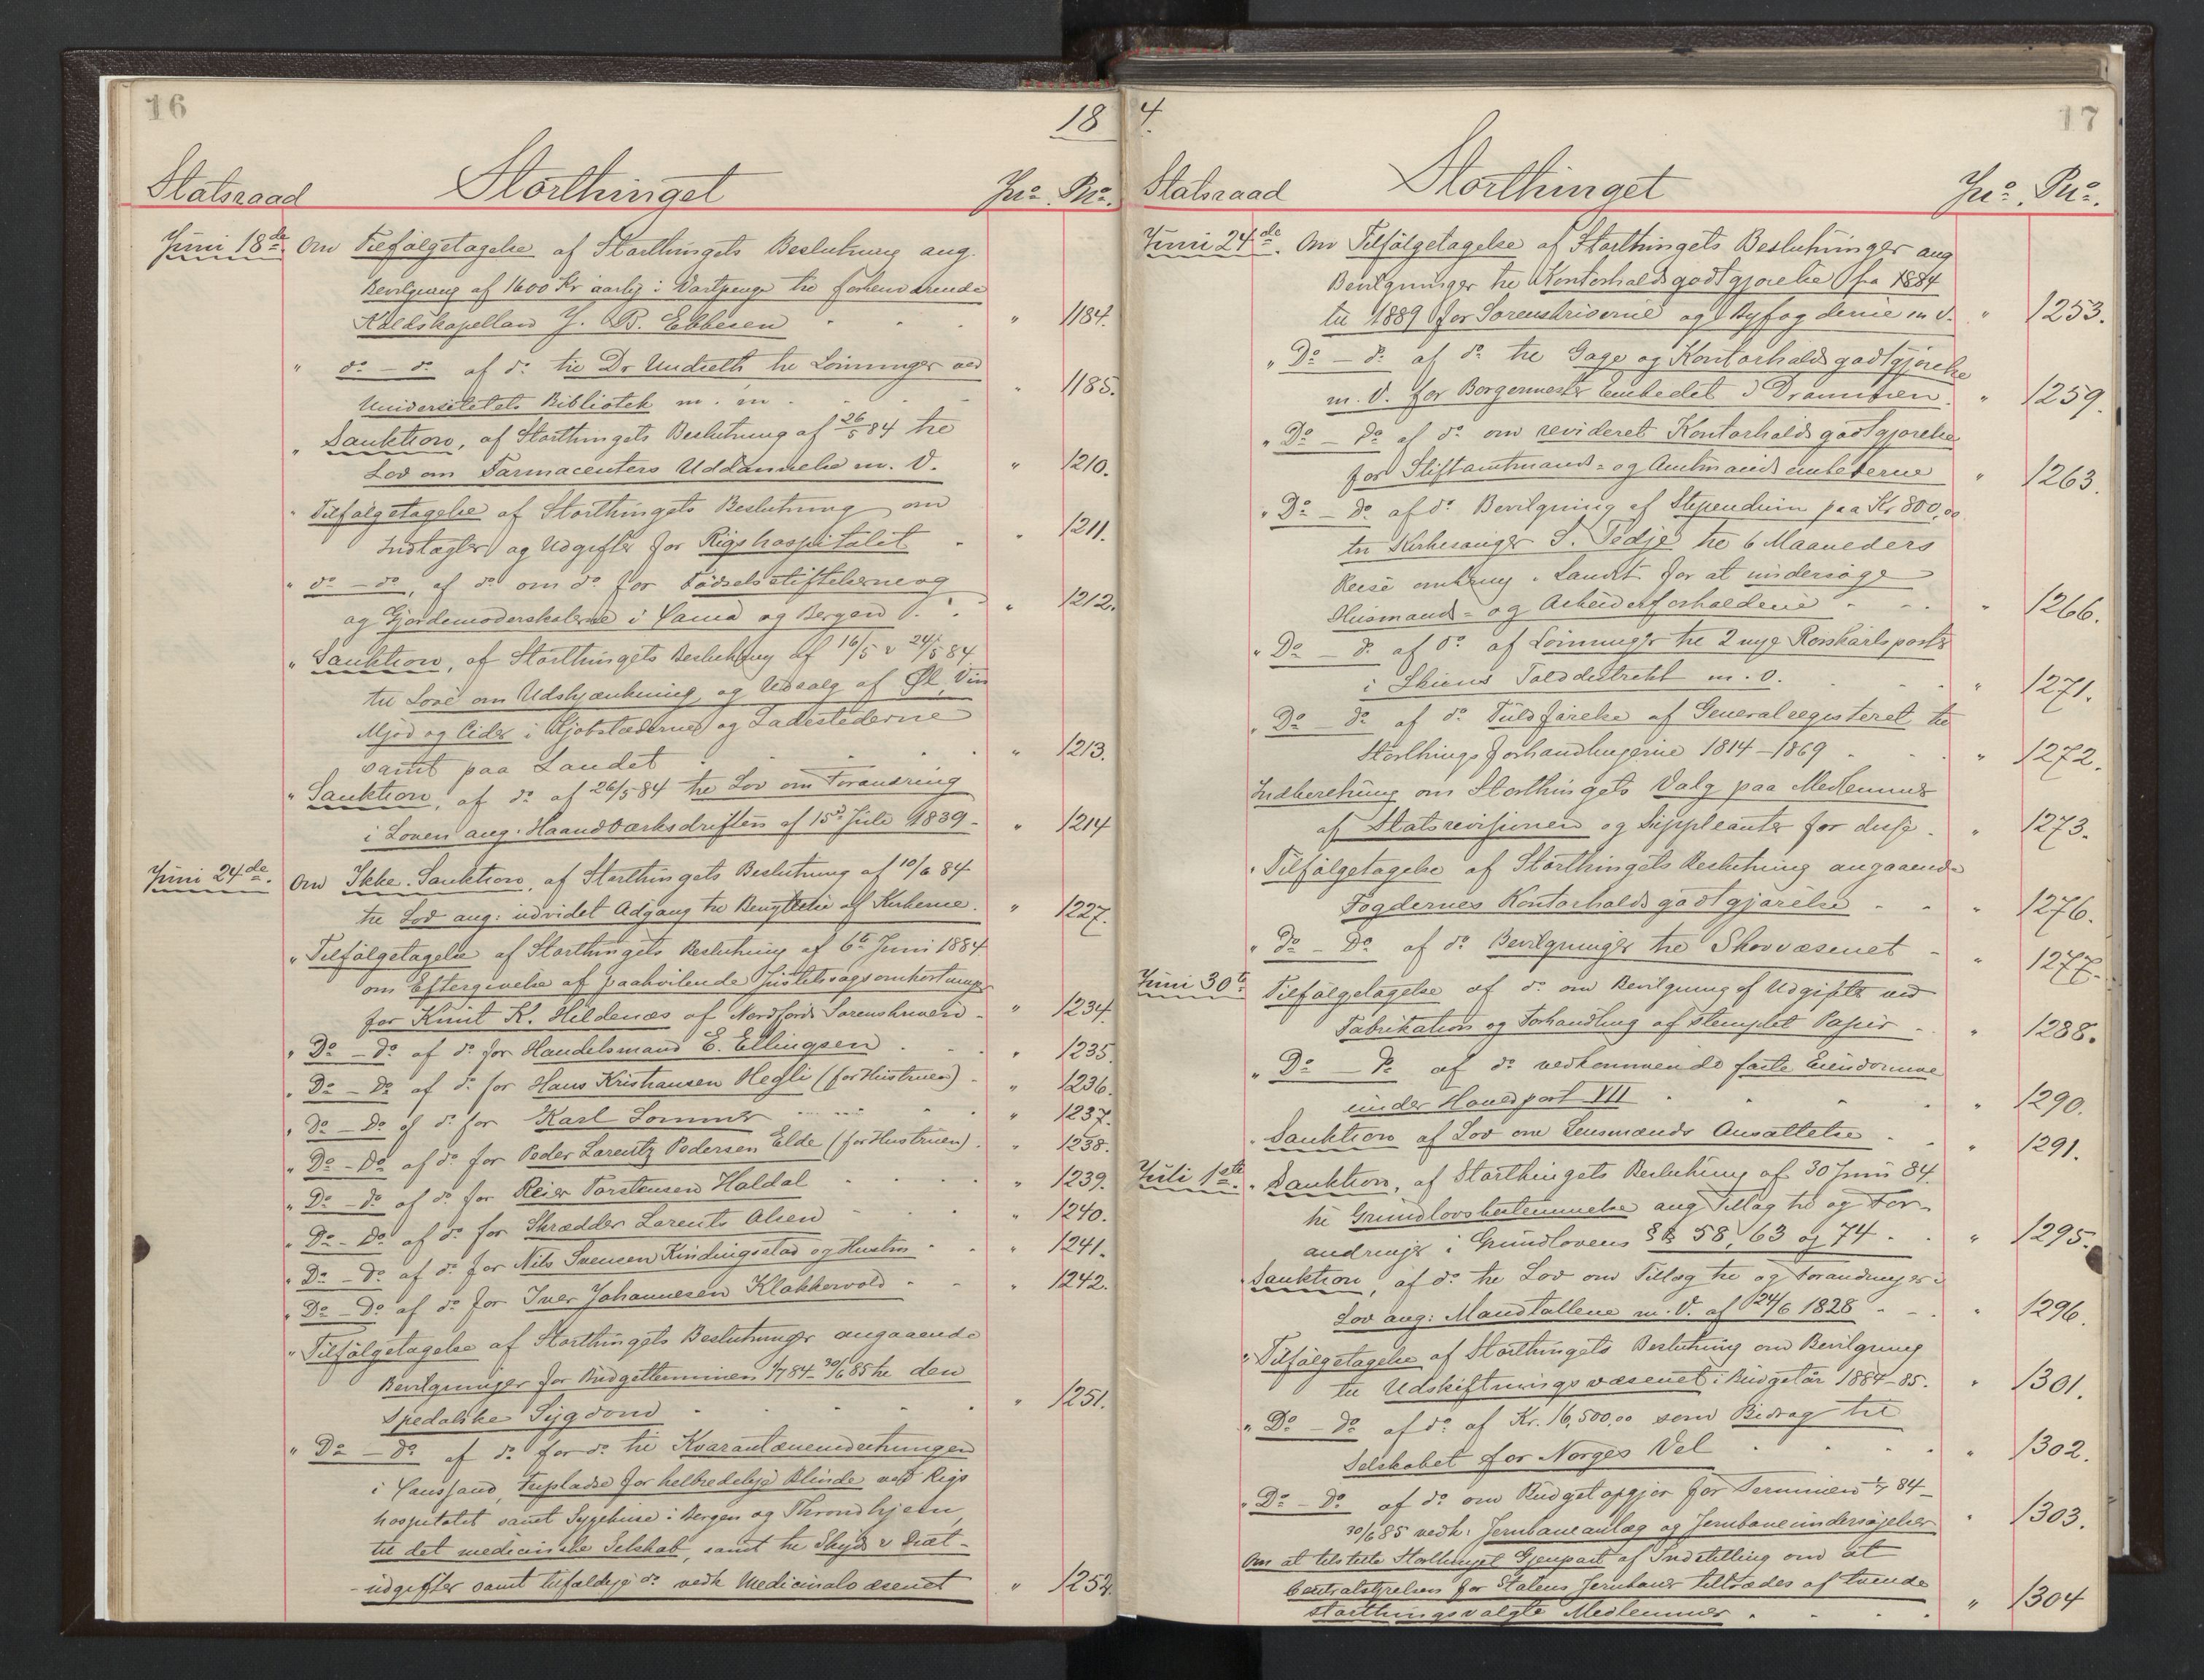 16
18
Statsraad Storthinget Jno. Pno.
Juni 18de. Om Tilfölgetagelse af Storthingets Beslutning ang.
Bevilgning af 1600 Kr aarlig i Vartpenge til forhenværende
Kaldskapellan J. B. Ebbesen " 1184.
" do - do af do til Dr Undseth til Lönninger ved
Universitetets Bibliotek m. m. " 1185.
" Sanktion, af Storthingets Beslutning af 26/5 84 til
Lov om Farmaceuters Uddannelse m. V. " 1210.
" Tilfölgetagelse af Storthingets Beslutning om
Indtægter og Udgifter for Rigshospitalet " 1211.
" do - do, af do om do for Födselsstiftelserne og
og Gjordemoderskolerne i Xania og Bergen " 1212.
" Sanktion, af Storthingets Beslutning af 16/5 & 24/5 84
til Love om Udskjænkning og Udsalg af Øl, Vin
Mjød og Cider i Kjøbstæderne og Ladestederne
samt paa Landet " 1213.
" Sanktion, af do af 26/5 84 til Lov om Forandring
i Loven ang. Haandværksdriften af 15de Juli 1839 - " 1214
Juni 24de. Om Ikke-Sanktion, af Storthingets Beslutning af 10/6 84
til Lov ang: udvidet Adgang til Benyttelse af Kirkerne. " 1227.
" Tilfölgetagelse af Storthingets Beslutning af 6te Juni 1884
om Eftergivelse af paahvilende Justitssagsomkostninger
for Knut K. Hildenæs af Nordfjords Sorenskriveri - " 1234.
" Do - do af do for Handelsmand E. Ellingsen " 1235.
" Do - Do af do for Hans Kristiansen Hegli (for Hustruen) " 1236.
" do - Do af do for Karl Sommer " 1237.
" Do - Do af do for Peder Lorentz Pedersen Elde (for Hustruen). " 1238.
" Do - do af do for Reier Torstensen Haldal " 1239.
" Do - Do af do for Skrædder Lorents Olsen " 1240.
" Do - Do af do for Nils Svensen Kindingstad og Hustru " 1241.
" Do - Do af do for Iver Johannesen Klokkervold " 1242.
" Tilfölgetagelse af Storthingets Beslutninger angaaende
Bevilgninger for Budgetterminen 1/7 84 - 30/6 85 til den
Spedalske Sygdom " 1251.
" Do - do af do for do til Kvarantæneindretningen
i Xanssand, Fripladse for helbredelige Blinde ved Rigs
hospitalet samt Sygehuse i Bergen og Throndhjem,
til det medicinske Selskab, samt til Skyds & Diæt-
-udgifter samt tilfældige do vedk Medicinalvæsenet " 1252.
4.
17
Statsraad Storthinget Jno. Pno.
Juni 24de. Om Tilfölgetagelse af Storthingets Beslutninger ang
Bevilgninger til Kontorholdsgodtgjorelse fra 1884
til 1889 for Sorenskriverne og Byfogderne m V. " 1253.
" Do - do af do til Gage og Kontorholdsgodtgjörelse
m. V. for Borgermester Embedet i Drammen. " 1259.
" Do - Do af do om revideret Kontorholdsgodtgjorelse
for Stiftamtmands- og Amtmandsembederne " 1263.
" Do - Do af do Bevilgning af Stipendium paa Kr 800,00
til Kirkesanger S. Tedje til 6 Maaneders
Reise omkring i Landet for at undersöge
Husmands- og Arbeiderforholdene " 1266.
" Do - do af do af Lönninger til 2 nye Rorskarlsposter
i Skiens Tolddistrikt m. v. " 1271.
" Do - do af do Fuldförelse af Generalregisteret til
Storthingsforhandlingerne 1814-1869 " 1272.
Indberetning om Storthingets Valg paa Medlemmer
af Statsrevisionen og Suppleanter for disse. " 1273.
" Tilfölgetagelse af Storthingets Beslutning angaaende
Fogdernes Kontorholdsgodtgjörelse " 1276.
" Do - Do af do Bevilgninger til Skovvæsenet " 1277.
Juni 30te Tilfölgetagelse af do om Bevilgning af Udgifter ved
Fabrikation og Forhandling af stemplet Papir " 1288.
" Do - Do af do vedkommende faste Eiendomme
under Hovedpost VII " 1290.
" Sanktion af Lov om Lensmænds Ansættelse " 1291.
Juli 1ste. " Sanktion, af Storthingets Beslutning af 30 Juni 84.
til Grundlovsbestemmelse ang Tillæg til og For-
andringer i Grundlovens §§ 58, 63 og 74 - " 1295.
Sanktion, af do til Lov om Tillæg til og Forandringer i
Lov ang: Mandtallene m. V. af 24/6 1828 " 1296.
" Tilfölgetagelse af Storthingets Beslutning om Bevilgning
til Udskiftningsvæsenet i Budgetår 1884-85. " 1301.
" Do - do af do af Kr. 16,500,00 som Bidrag til
Selskabet for Norges Vel " 1302.
" Do - Do af do om Budgetopgjör for Terminen 1/7 84 -
30/6 85 vedk: Jernbaneanlæg og Jernbaneundersögelser " 1303.
Om at tilstille Storthinget Gjenpart af Indstilling om at
Centralstyrelsen for Statens Jernbaner tiltrædes af tvende
storthingsvalgte Medlemmer " 1304